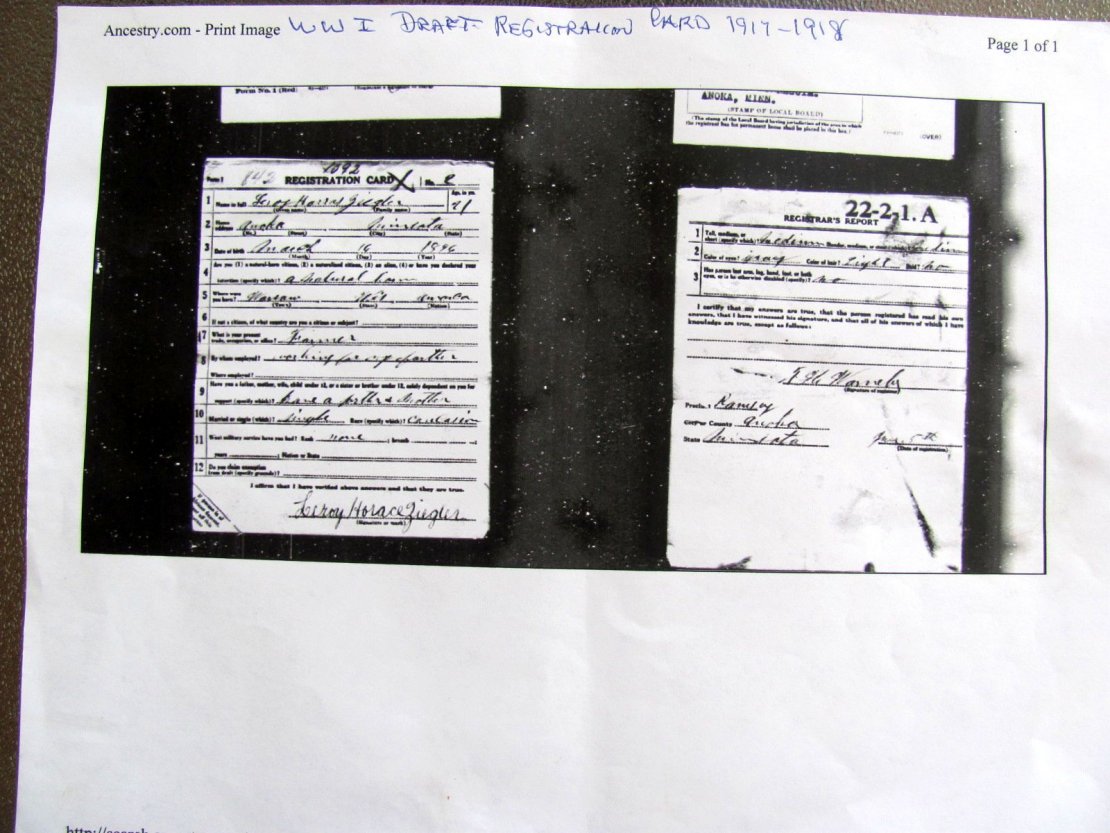 Ancestry.com - Print Image WW I DRAFT REGISTRATION CARD 1917-1918
Page 1 of 1
Form No. 1 (Red)
ANOKA, MINN.
(STAMP OF LOCAL BOARD)
(The stamp of the Local Board having jurisdiction of the area in which
the registrant has his permanent home shall be placed in this box.)
(OVER)
Form 1 843 1092 REGISTRATION CARD X No. 2
1 Name in full Leroy Horace Ziegler Age, in yrs. 21
(Given name) (Family name)
2 Home address Anoka Minnesota
(No.) (Street) (City) (State)
3 Date of birth March 16 1896
(Month) (Day) (Year)
4 Are you (1) a natural-born citizen, (2) a naturalized citizen, (3) an alien, (4) or have you declared your
intention (specify which)? a natural born
5 Where were you born? Warsaw America
(Town) (State) (Nation)
6 If not a citizen, of what country are you a citizen or subject?
7 What is your present trade, occupation, or office? Farmer
8 By whom employed? working for my father
Where employed?
9 Have you a father, mother, wife, child under 12, or a sister or brother under 12, solely dependent on you for
support (specify which)? have a father & mother
10 Married or single (which)? single Race (specify which)? Caucasian
11 What military service have you had? Rank none ; branch ;
years ; Nation or State
12 Do you claim exemption from draft (specify grounds)?
I affirm that I have verified above answers and that they are true.
Leroy Horace Ziegler
(Signature or mark)
22-2-1. A
REGISTRAR'S REPORT
1 Tall, medium, or short (specify which)? medium Slender, medium, or stout (which)? medium
2 Color of eyes? gray Color of hair? light Bald? no
3 Has person lost arm, leg, hand, foot, or both
eyes, or is he otherwise disabled (specify)? no
I certify that my answers are true, that the person registered has read his own
answers, that I have witnessed his signature, and that all of his answers of which I have
knowledge are true, except as follows:
(Signature of registrar)
Precinct Ramsey
City or County Anoka
State Minnesota June 5th
(Date of registration)